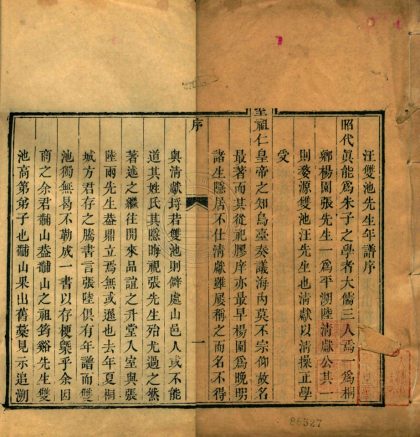 汪雙池先生年譜序
昭代眞能爲朱子之學者大儒三人焉一爲桐
鄉楊園張先生一爲平湖陸清獻公其一
則婺源雙池汪先生也清獻以清操正學
受
聖祖仁皇帝之知烏臺奏議海內莫不宗仰故名
最著而其從祀膠庠亦最早楊園爲晚明
諸生隱居不仕清獻雖屢稱之而名不得
序
一
與清獻埒若雙池則僻處山邑人或不能
道其姓氏其隱晦視張先生殆尤過之然
著述之繼往開來品誼之升堂入室與張
陸兩先生葢鼎立焉無或遜也去年夏桐
城方君存之騰書言張陸俱有年譜而雙
池獨無曷不勒成一書以存梗槩乎余因
商之余君黼山葢黼山之祖鈞谿先生雙
池高第弟子也黼山果出舊藁見示追溯
86527